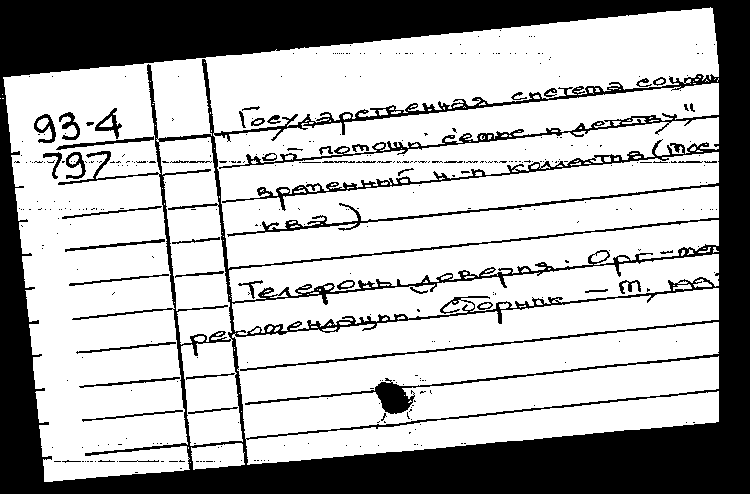 93-4
797
"Государственная система социаль
ной помощи семье и детству",
временный н.-и коллектив (Мос-
ква)
Телефоны доверия: Орг.-мет
рекомендации: Сборник – М.,